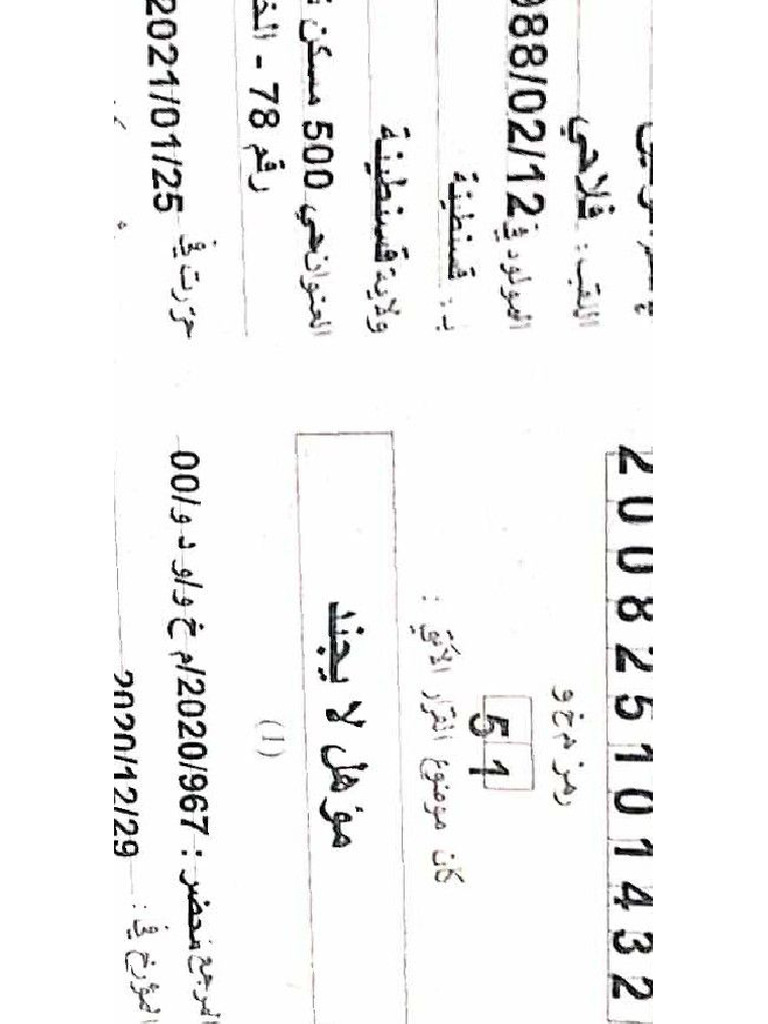 اللقب : فلاحي
المولود في 988/02/12
ب : قسنطينة
ولاية قسنطينة
العنوان حي 500 مسكن
رقم 78 - الخ
حررت في 2021/01/25
2 0 0 8 2 5 1 0 1 4 3 2
رمز م خ و
5 1
كان موضوع القرار الآتي :
مؤهل لا يجند
(1)
المرجع محضر : 967/2020/م خ و/و د و/00
المؤرخ في : 2020/12/29